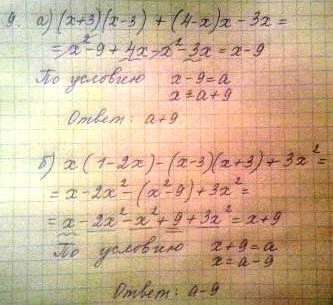 9. а) (x+3)(x-3) + (4-x)x - 3x =
= x²-9 + 4x - x² - 3x = x-9
По условию x-9=a
x=a+9
Ответ: a+9
б) x(1-2x)-(x-3)(x+3)+3x²=
= x-2x²-(x²-9)+3x²=
= x-2x²-x²+9+3x²=x+9
По условию x+9=a
x=a-9
Ответ: a-9